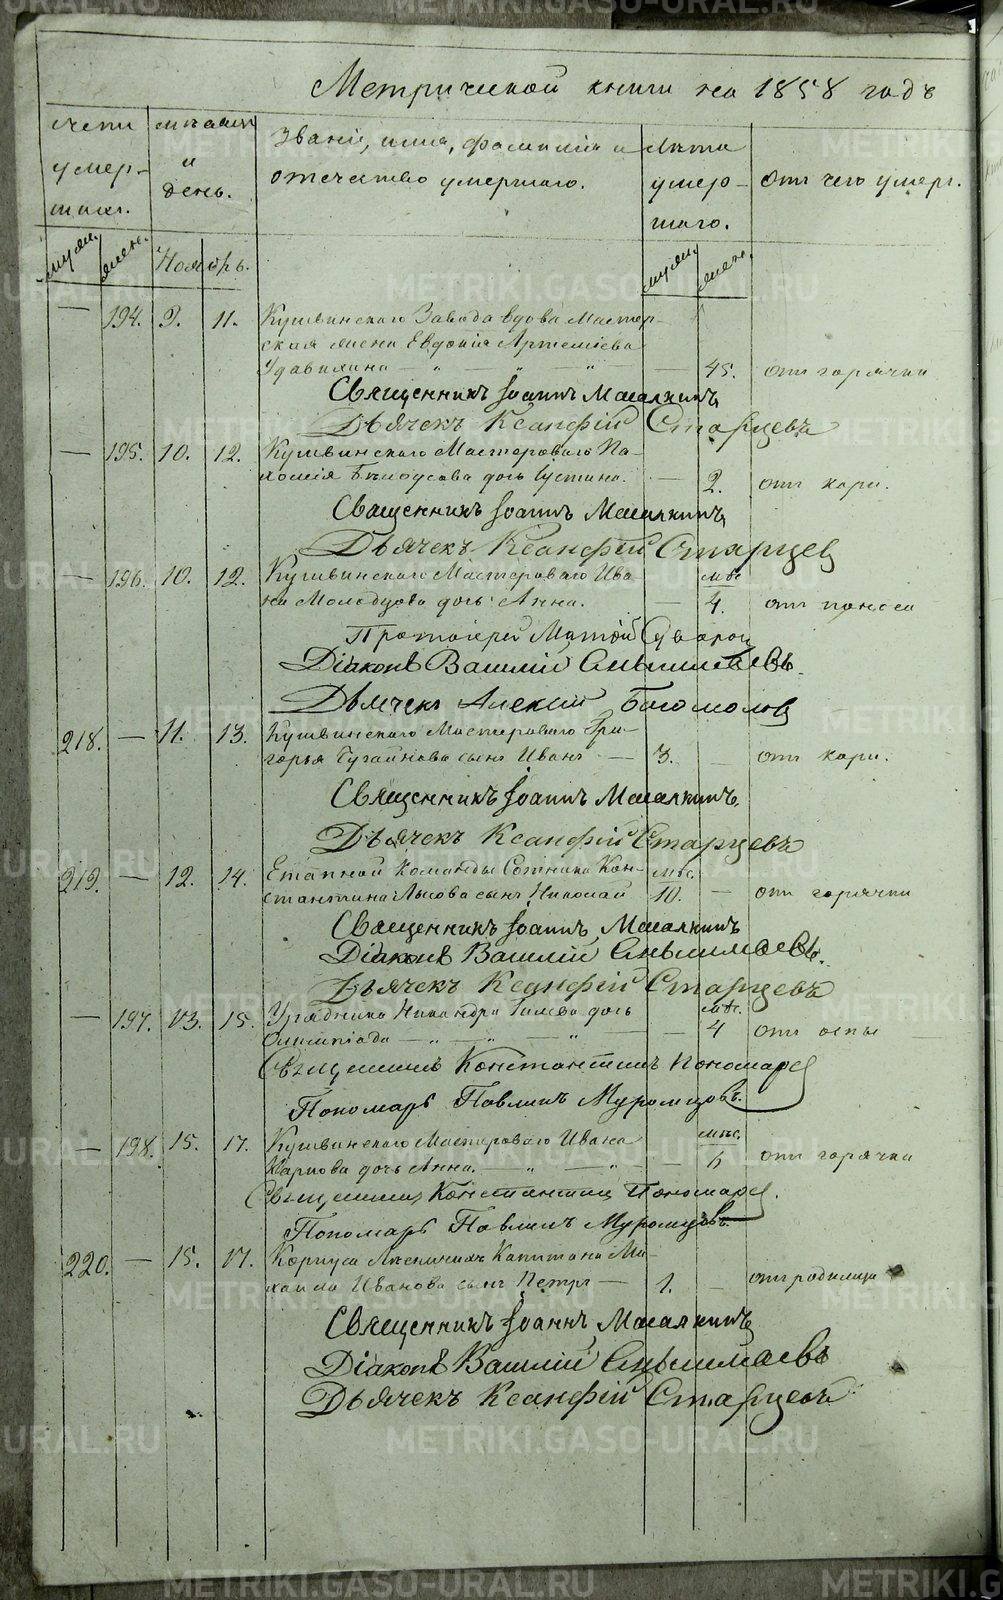 Метрической книги на 1858 годъ
Счетъ умер- шихъ.
Мѣсяцъ и день.
Званіе, имя, фамилія и отчество умершаго.
Лѣта умер- шаго.
Отъ чего умеръ.
муж. жен. Ноябрь. муж. жен.
— 194. 9. 11. Кушвинскаго Завода вдова Мастер-
ская жена Евдокія Артеміева
— 45. отъ горячки
Священникъ Іоаннъ
Дьячекъ Ксанфій Старцевъ
— 195. 10. 12. Кушвинскаго Мастероваго Па-
хомія Бѣлоусова дочь Устина. — 2. отъ кори.
Священникъ Іоаннъ
Дьячекъ Ксанфій Старцев
— 196. 10. 12. Кушвинскаго Мастероваго Ива- мѣс
на Молодцова дочь Анна. — 4. отъ поноса
Протоіерей
Діаконъ Василій
Дьячекъ Алексій Богомолов
218. — 11. 13. Кушвинскаго Мастероваго Гри-
горья сынъ Иванъ — 3. — отъ кори.
Священникъ Іоаннъ
Дьячекъ Ксанфій Старцевъ
219. — 12. 14. Етапной Команды Сотника Кон- мѣс.
стантина Лысова сынъ Николай 10. — отъ горячки
Священникъ Іоаннъ
Діаконъ Василій
Дьячекъ Ксанфій Старцевъ
— 197. 13. 15. Урядника Никандра дочь мѣс.
Олимпіада — „ — „ — „ — 4 отъ оспы
Священникъ Константинъ Пономарев
Пономарь Павлинъ Муромцовъ.
— 198. 15. 17. Кушвинскаго Мастероваго Ивана мѣс.
Карпова дочь Анна. — „ — „ — 6 отъ горячки
Священникъ Константинъ Пономарев.
Пономарь Павлинъ Муромцовъ
220. — 15. 17. Корпуса Капитана Ми-
хаила Иванова сынъ Петръ — 1. — отъ родимца
Священникъ Іоаннъ
Діаконъ Василій
Дьячекъ Ксанфій Старцевъ
METRIKI.GASO-URAL.RU